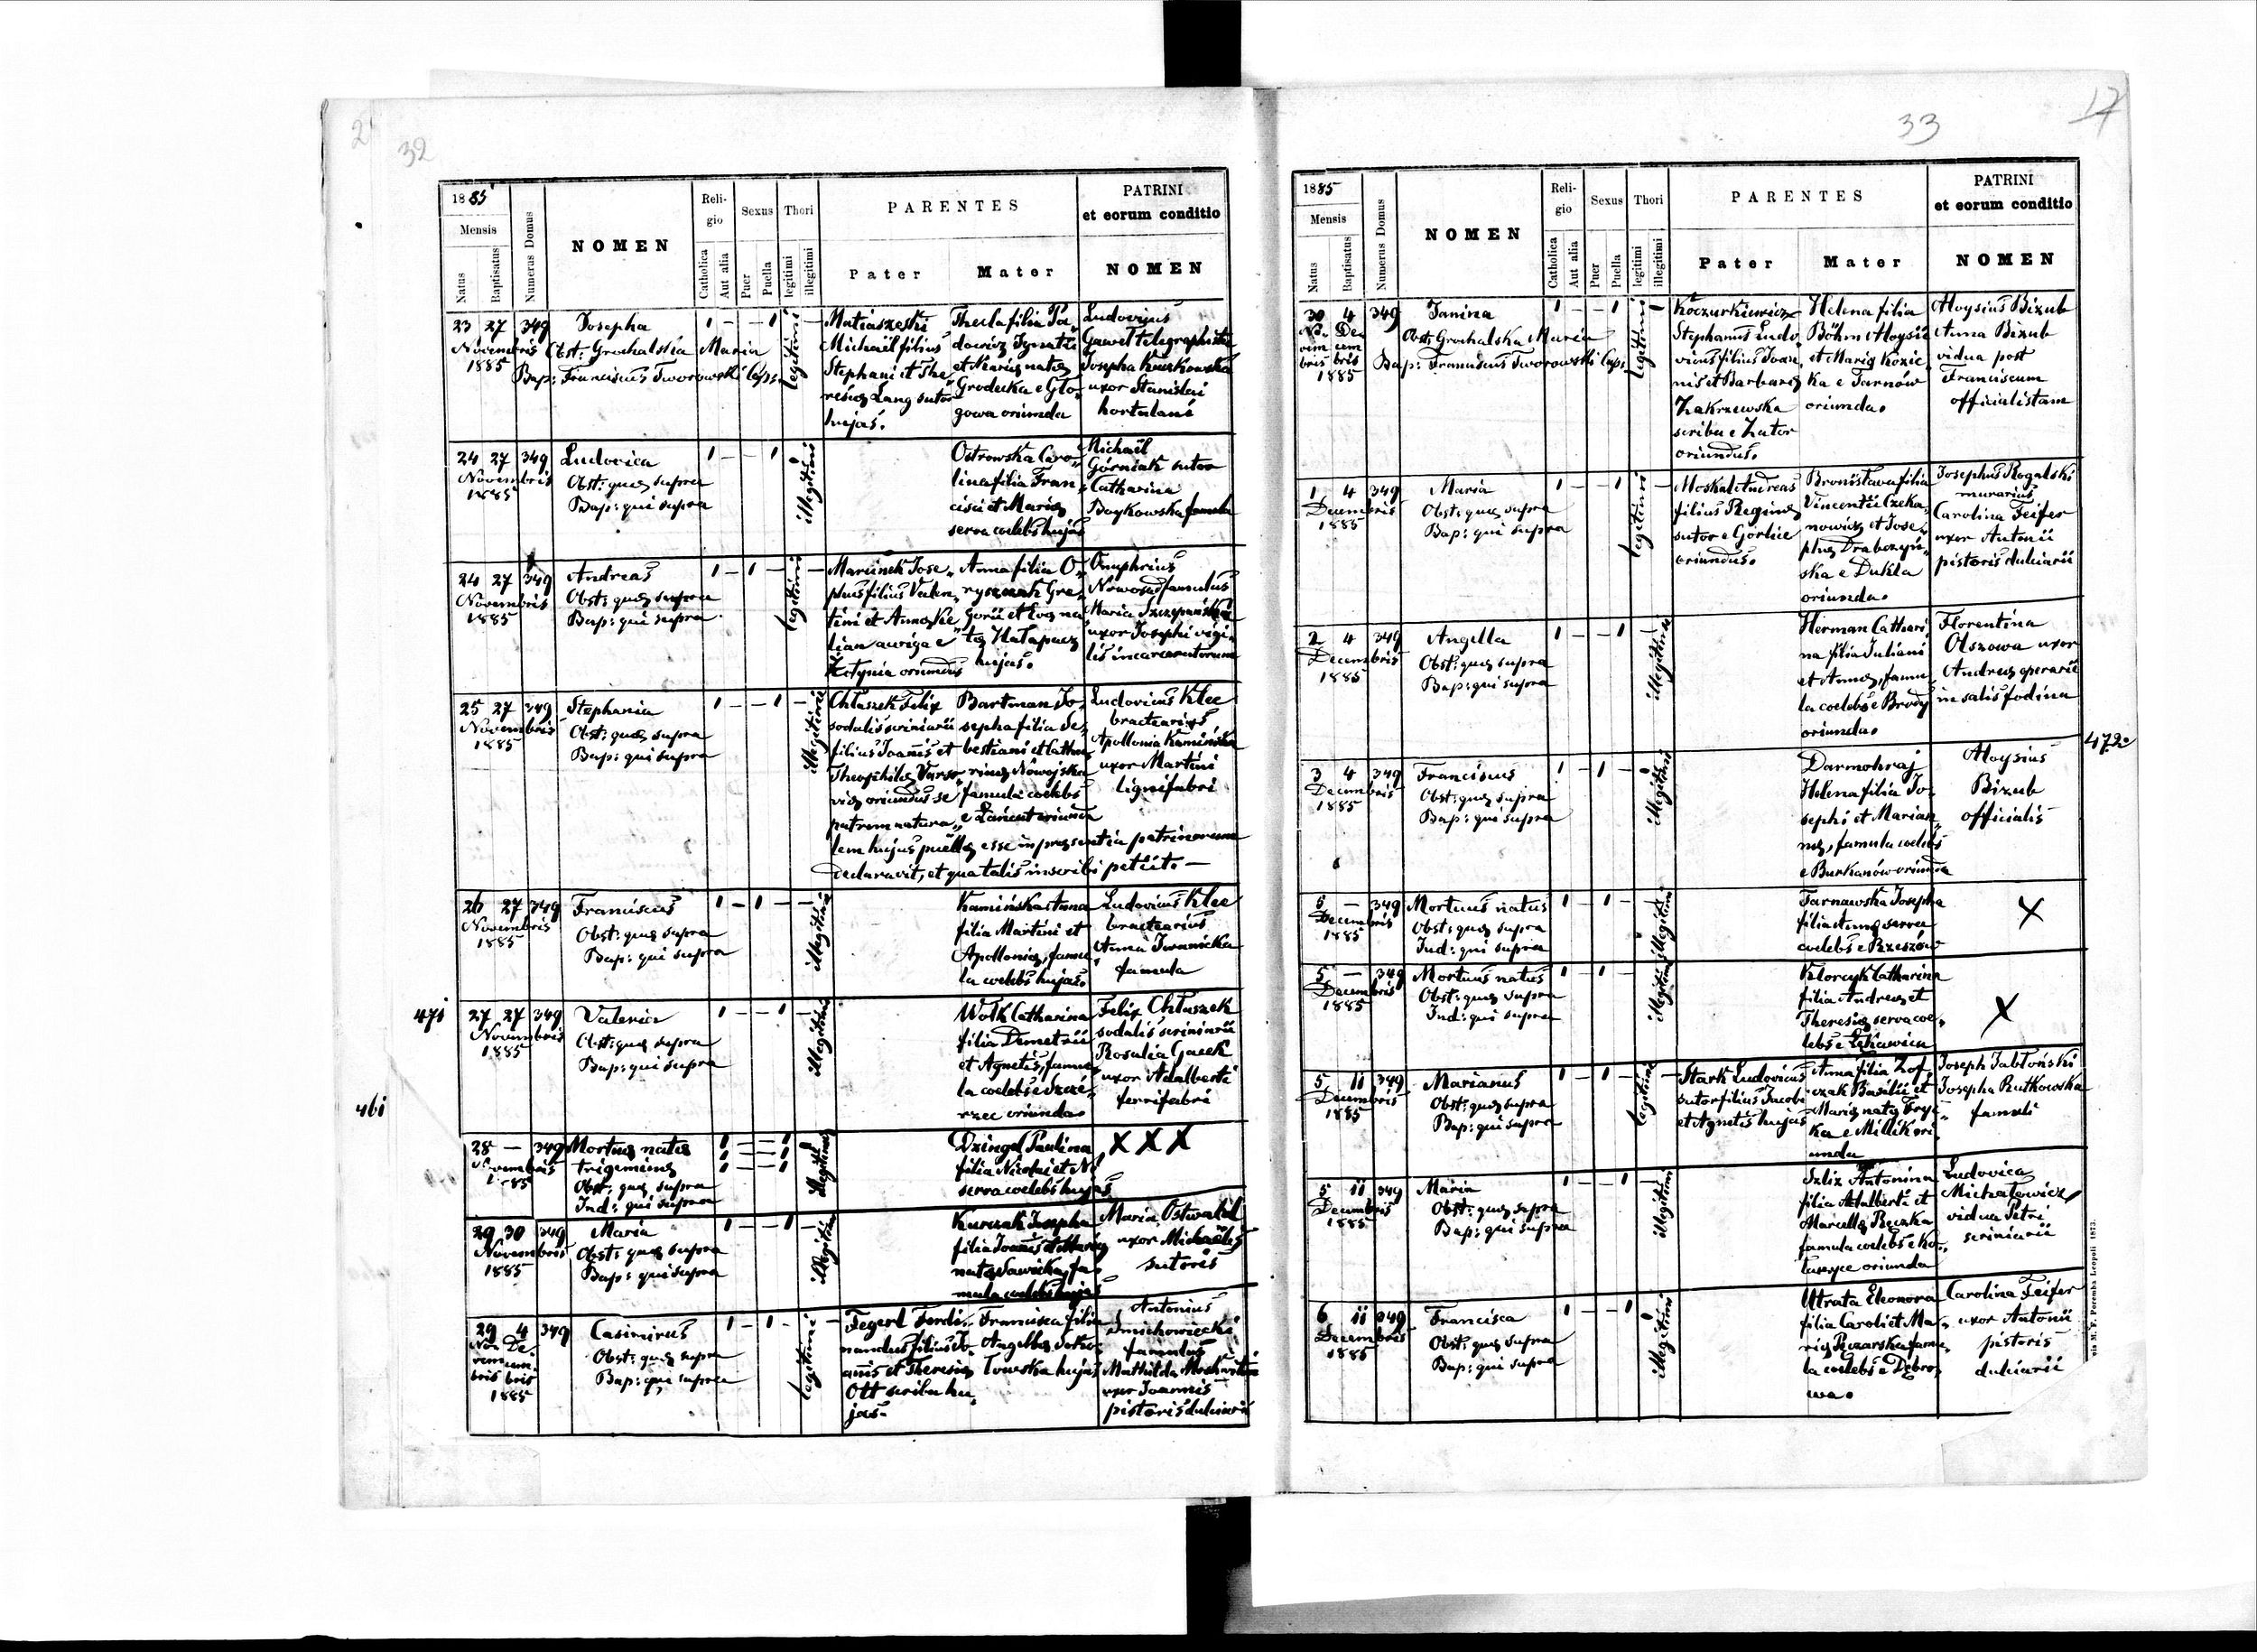 32
1885
Mensis
Natus
Baptisatus
Numerus Domus
NOMEN
Reli-
gio
Catholica
Aut alia
Sexus
Puer
Puella
Thori
legitimi
illegitimi
PARENTES
Pater
Mater
PATRINI
et eorum conditio
NOMEN
23 27 349
Novembris
1885
Josepha
Obst: Grochalska Maria
Bap: Franciscus Tworowski
legitimi
Matiaszeski
Michaël filius
Stephani et The
resiæ Lang sutor
hujas.
Thecla filia Pa,
dowicz Ignatii
et Mariæ natæ
Grodecka e Gło-
gowa oriunda
Ludovicus
Gaweł telegraphista
Josepha Kurkowska
uxor Stanislai
hortulani
24 27 349
Novembris
1885
Ludovica
Obst: quæ supra
Bap: qui supra
illegitimi
Ostrowska Caro,
lina filia Fran,
cisci et Mariæ
serva coelebs hujas
Michaël
Górniak sutor
Catharina
Boykowska famula
24 27 349
Novembris
1885
Andreas
Obst: quæ supra
Bap: qui supra
legitimi
Marcinek Jose,
phus filius Valen,
tini et Annæ Ke
lian auriga e
oriundus
Anna filia O,
ryszczak Gre,
gorii et Evæ na
tæ
hujas.
Onuphrius
Nowosad famulus
Maria Szczepańska
uxor Josephi vigi,
lis incarceratorum
25 27 349
Novembris
1885
Stephania
Obst: quæ supra
Bap: qui supra
illegitimi
Chłaszek Felix
sodalis scriniarii
filius Joannis et
Theophilæ Varso,
viæ oriundus se
patrem natura,,
lem hujus puellæ esse in præsentia patrinorum
declaravit, et qua talis inscribi petiit. —
Bartman Jo,
sepha filia Se,
bastiani et Catha
rinæ Nowojska
famula coelebs
e Łańcut oriunda
Ludovicus Klee
bractearius
Apollonia Kamińska
uxor Martini
lignifabri
26 27 349
Novembris
1885
Franciscus
Obst: quæ supra
Bap: qui supra
illegitimi
Kamińska Anna
filia Martini et
Apolloniæ, famu,
la coelebs hujas.
Ludovicus Klee
bractearius
Anna Iwanicka
famula
471
27 27 349
Novembris
1885
Valeria
Obst: quæ supra
Bap: qui supra
illegitimi
Wolk Catharina
filia Demetrii
et Agnetis, famu,
la coelebs e Szcze,
rzec oriunda
Felix Chłaszek
sodalis scriniarii
Rosalia Gacek
uxor Adalberti
ferrifabri
461
28 — 349
Novembris
1885
Mortuæ natæ
trigeminæ
Obst: quæ supra
Ind: qui supra
illegitimi
Dzingel Paulina
filia Nicolai et N.
serva coelebs hujas
X X X
29 30 349
Novembris
1885
Maria
Obst: quæ supra
Bap: qui supra
illegitimi
Kurczak Josepha
filia Joannis et Mariæ
natæ Sawicka, fa,
mula coelebs hujas
Maria Ostwald
uxor Michaëlis
sutoris
29 4 349
No- De-
vem cem-
bris bris
1885
Casimirus
Obst: quæ supra
Bap: qui supra
legitimi
Fegerl Ferdi,,
nandus filius Jo,
annis et Theresiæ
Ott scriba hu,
jas.
Francisca filia
Angellæ Soko,
łowska hujas
Antonius
Smichowiecki
famulus
Mathilda
uxor Joannis
pistoris dulciarii
33
17
1885
Mensis
Natus
Baptisatus
Numerus Domus
NOMEN
Reli-
gio
Catholica
Aut alia
Sexus
Puer
Puella
Thori
legitimi
illegitimi
PARENTES
Pater
Mater
PATRINI
et eorum conditio
NOMEN
30 4 349
No- De-
vem cem
bris bris
1885
Janina
Obst: Grochalska Maria
Bap: Franciscus Tworowski
legitimi
Koczurkiewicz
Stephanus Ludo,
vicus filius Joan,
nis et Barbaræ
Zakrzewska
scriba e Zator
oriundus.
Helena filia
Böhm Aloysii
et Mariæ Kozic,
ka e Tarnów
oriunda.
Aloysius Bizub
Anna Bizub
vidua post
Franciscum
officialistam
1 4 349
Decembris
1885
Maria
Obst: quæ supra
Bap: qui supra
legitimi
Moskal Andreas
filius Reginæ
sutor e Gorlice
oriundus.
Bronislava filia
Vincentii Czeka,
nowicz et Jose,
phæ Drabczyń,
ska e Dukla
oriunda.
Josephus Rogalski
murarius
Carolina Feifer
uxor Antonii
pistoris dulciarii
2 4 349
Decembris
1885
Angella
Obst: quæ supra
Bap: qui supra
illegitimi
Herman Cathari,
na filia Juliani
et Annæ, famu,
la coelebs e Brody
oriunda.
Florentina
Olszowa uxor
Andreæ operarii
in salis fodina
472
3 4 349
Decembris
1885
Franciscus
Obst: quæ supra
Bap: qui supra
illegitimi
Darmohraj
Helena filia Jo,
sephi et Marian,
næ, famula coelebs
e Burkanów oriunda
Aloysius
Bizub
officialis
5 — 349
Decembris
1885
Mortuus natus
Obst: quæ supra
Ind: qui supra
illegitimi
Tarnawska Josepha
filia Annæ serva
coelebs e Rzeszów
X
5 — 349
Decembris
1885
Mortuus natus
Obst: quæ supra
Ind: qui supra
illegitimi
Klorczyk Catharina
filia Andreæ et
Theresiæ serva coe,
lebs e Łękawica
X
5 11 349
Decembris
1885
Marianus
Obst: quæ supra
Bap: qui supra
legitimi
Stark Ludovicus
sutor filius Jacobi
et Agnetis hujas
Anna filia Zof,
czak Basilii et
Mariæ natæ Fryc
ka e Millik ori,
unda
Joseph Jabłoński
Josepha Rutkowska
famuli
5 11 349
Decembris
1885
Maria
Obst: quæ supra
Bap: qui supra
illegitimi
Szliz Antonina
filia Adalberti et
Marcellæ Reczka
famula coelebs e Ko,,
oriunda
Ludovica
Michałewicz
vidua Petri
scriniarii
6 11 349
Decembris
1885
Francisca
Obst: quæ supra
Bap: qui supra
illegitimi
Utrata Eleonora
filia Caroli et Ma,
riæ Pczarska famu,
la coelebs e Dąbro,
wa.
Carolina Feifer
uxor Antonii
pistoris
dulciarii
M. F. Poremba Leopoli 1873.